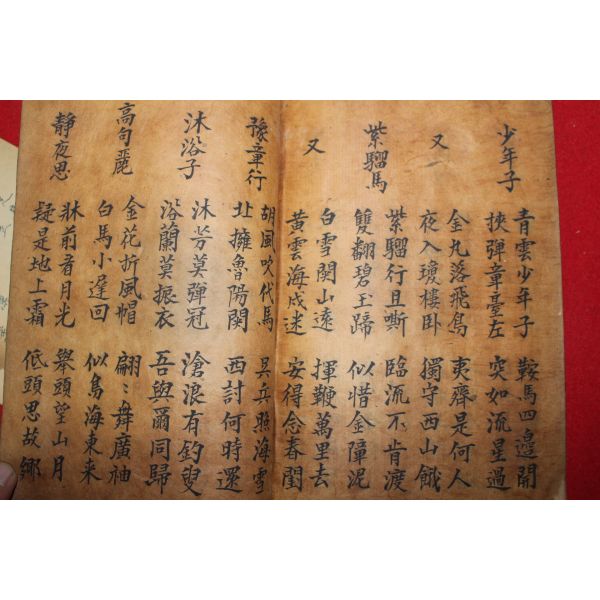 少年子
青雲少年子
挾彈章臺左
鞍馬四邊開
突如流星過
又
金丸落飛鳥
夜入瓊樓臥
夷齊是何人
獨守西山餓
紫騮馬
紫騮行且嘶
雙翻碧玉蹄
臨流不肯渡
似惜金障泥
又
白雪関山遠
黄雲海戍迷
揮鞭萬里去
安得念春閨
豫章行
胡風吹代馬
北擁魯陽関
吳兵照海雪
西討何時還
沐浴子
沐芳莫彈冠
浴蘭莫振衣
滄浪有釣叟
吾與爾同歸
高句麗
金花折風帽
白馬小遲回
翩〻舞廣袖
似鳥海東来
靜夜思
牀前看月光
疑是地上霜
舉頭望山月
低頭思故鄉